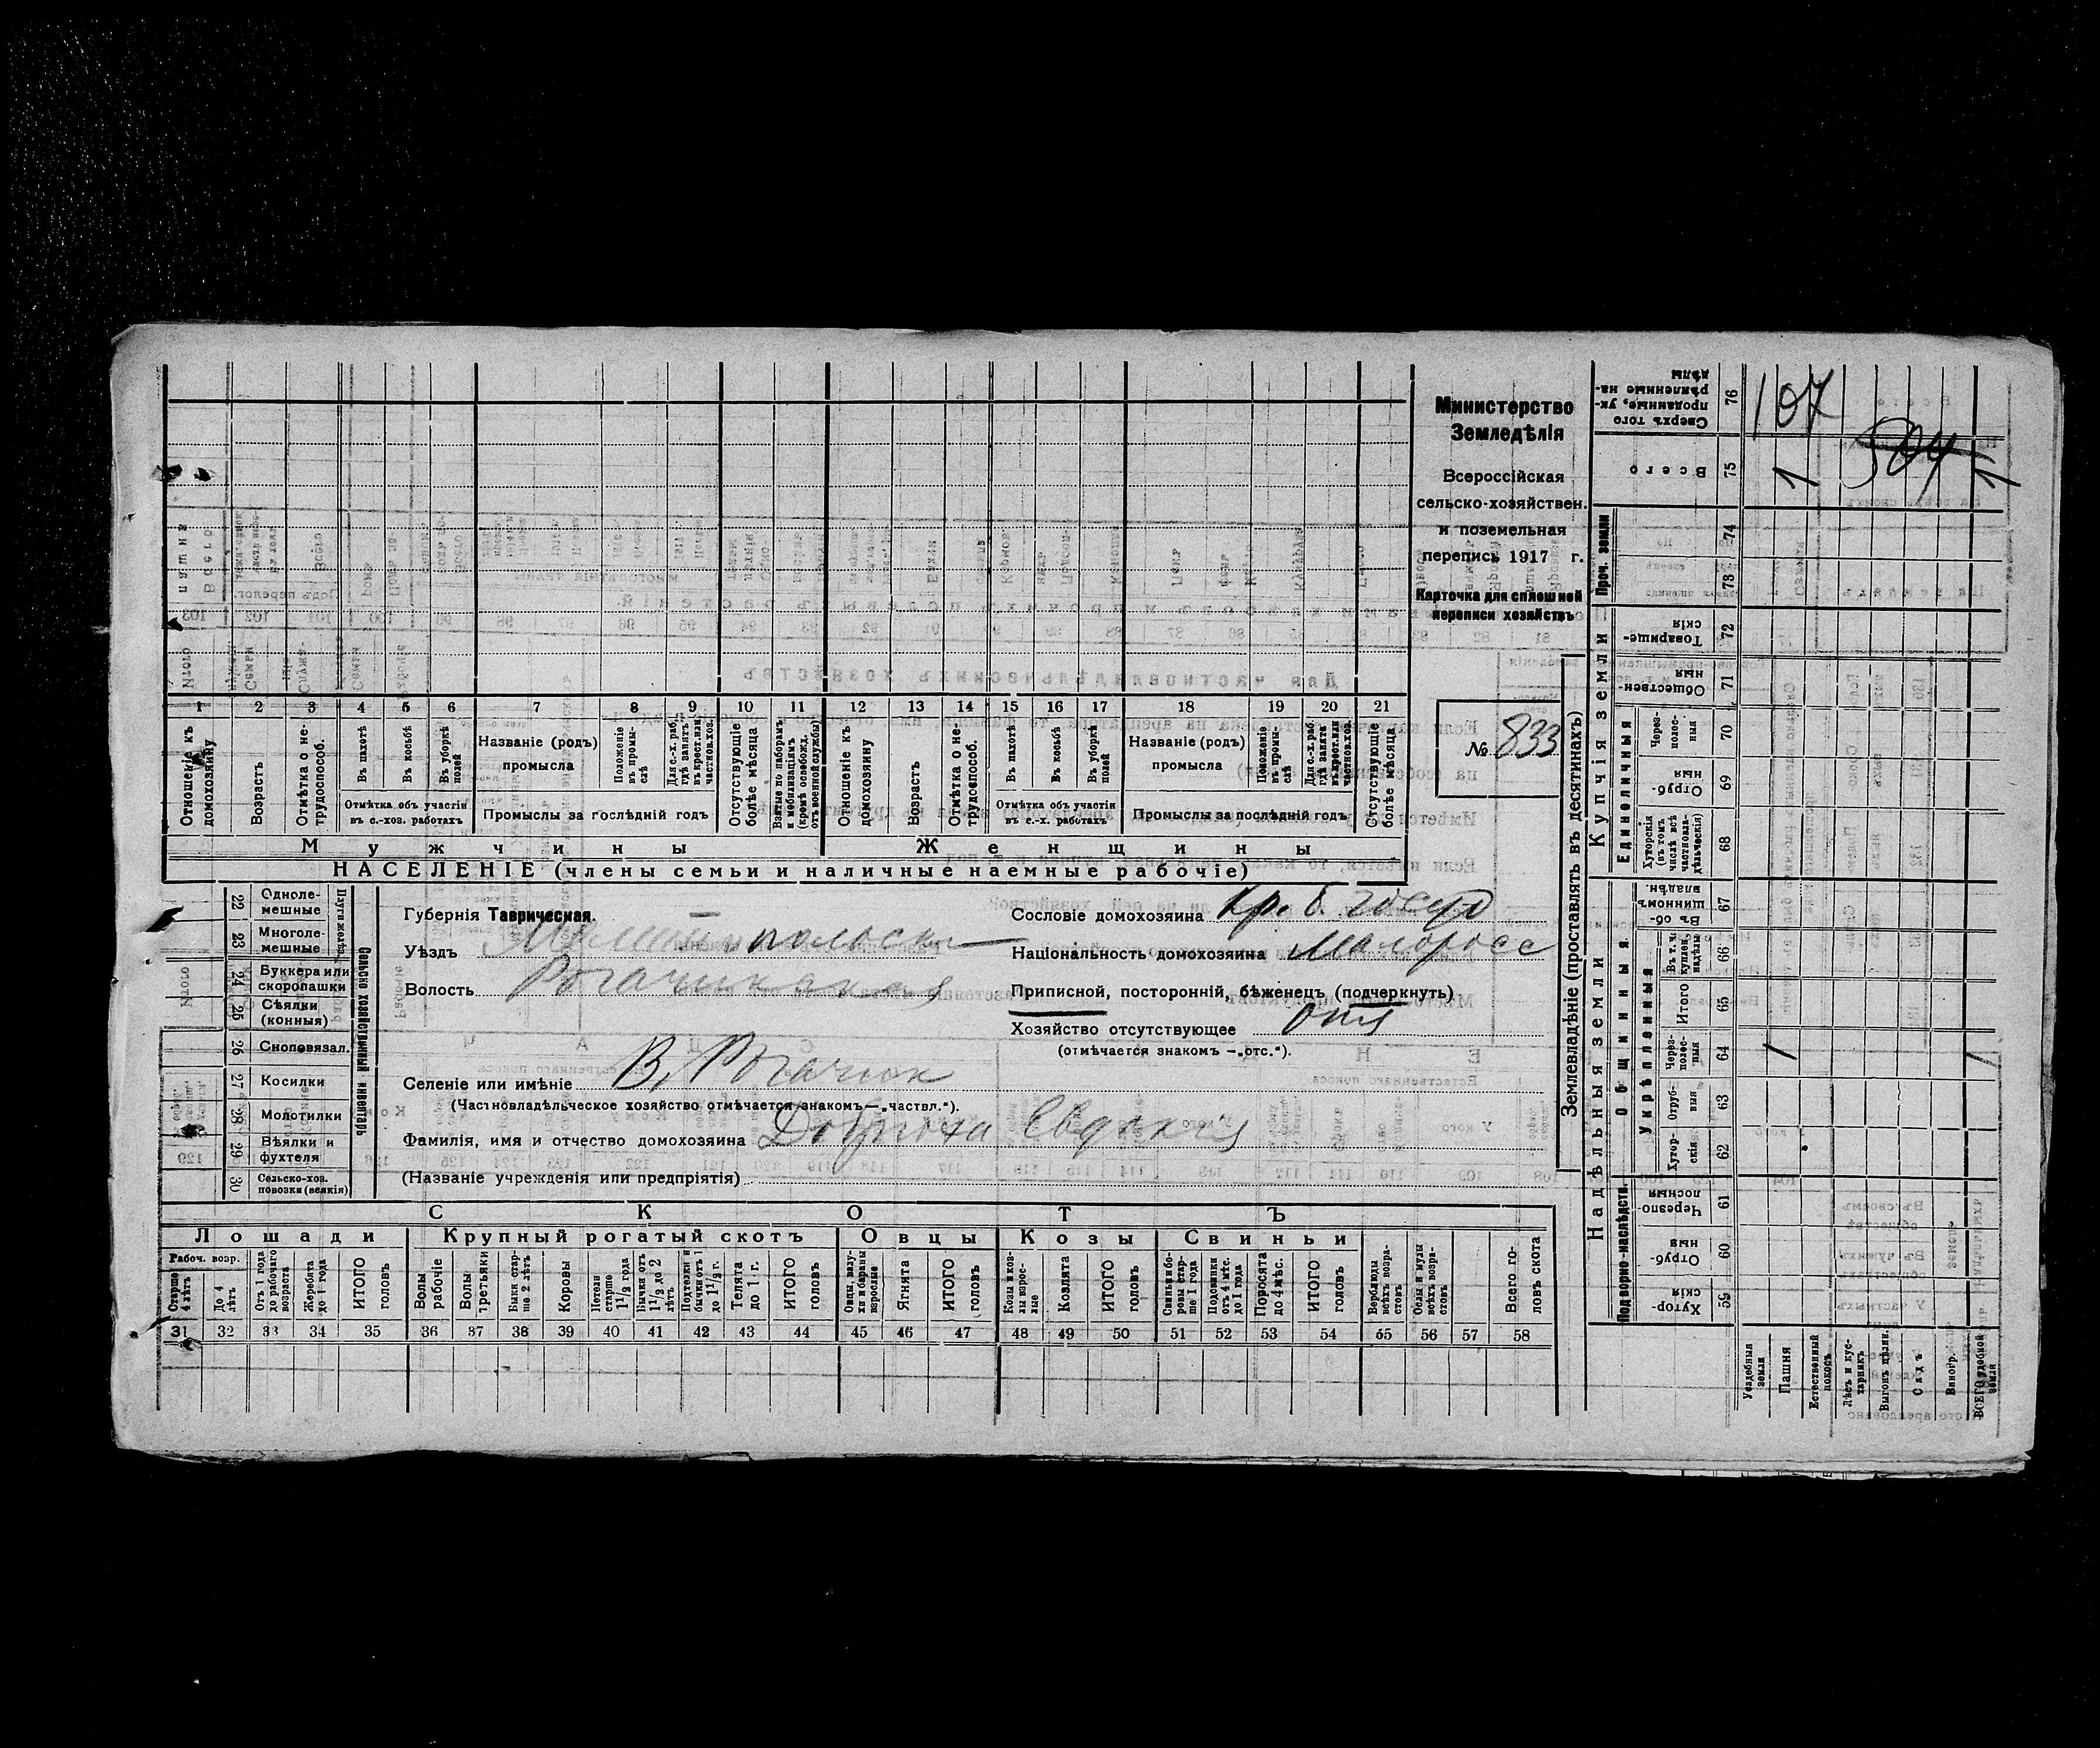 Министерство
Земледѣлія
Всероссійская
сельско-хозяйствен.
и поземельная
перепись 1917 г.
Карточка для сплошной
переписи хозяйствъ
№ 833
1 2 3 4 5 6 7 8 9 10 11 12 13 14 15 16 17 18 19 20 21
Отношеніе къ домохозяину
Возрастъ
Отмѣтка о не-трудоспособ.
Въ пахотѣ
Въ косьбѣ
Въ уборкѣ полей
Отмѣтка объ участіи въ с.-хоз. работахъ
Названіе (родъ) промысла
Положеніе въ промы-слѣ
Для с.-х. раб. гдѣ занятъ въ крест. или частнов. хоз.
Промыслы за послѣдній годъ
Отсутствующіе болѣе мѣсяца
Взятые по наборамъ и мобилизаціямъ (кромѣ освобожд. отъ военной службы)
Отношеніе къ домохозяину
Возрастъ
Отмѣтка о не-трудоспособ.
Въ пахотѣ
Въ косьбѣ
Въ уборкѣ полей
Отмѣтка объ участіи въ с.-х. работахъ
Названіе (родъ) промысла
Положеніе въ промы-слѣ
Для с.-х. раб. гдѣ занята въ крест. или частнов. хоз.
Промыслы за послѣдній годъ
Отсутствующіе болѣе мѣсяца
Мужчины Женщины
НАСЕЛЕНІЕ (члены семьи и наличные наемные рабочіе)
Сельско хозяйственный инвентарь
22 Одноле-мешные
23 Многоле-мешные
24 Буккера или скоропашки
25 Сѣялки (конныя)
26 Сноповязал.
27 Косилки
28 Молотилки
29 Вѣялки и фухтеля
30 Сельско-хоз. повозки (всякія)
Губернія Таврическая.
Уѣздъ
Волость Рогачикская
Селеніе или имѣніе В. Рогачик
(Частновладѣльческое хозяйство отмѣчается знакомъ—„частвл.").
Фамилія, имя и отчество домохозяина Евдокія
(Названіе учрежденія или предпріятія)
Сословіе домохозяина кр. б. госуд
Національность домохозяина Малоросс
Приписной, посторонній, бѣженецъ (подчеркнуть)
Хозяйство отсутствующее
(отмѣчается знакомъ —„отс.").
СКОТЪ
Лошади Крупный рогатый скотъ Овцы Козы Свиньи
Рабоч. возр.
Старше 4 лѣтъ
До 4 лѣтъ
Отъ 1 года до рабочаго возраста
Жеребята до 1 года
ИТОГО головъ
Волы рабочіе
Волы третьяки
Быки стар-ше 2 лѣтъ
Коровы
Нетели старше 1½ года
Бычки отъ 1½ до 2 лѣтъ
Подтелки и бычки отъ 1 до 1½ г.
Телята до 1 г.
ИТОГО головъ
Овцы, валу-хи и бараны взрослые
Ягнята
ИТОГО (головъ
Козы и коз-лы взрос-лые
Козлята
ИТОГО головъ
Свиньи и бо-ровы стар-ше 1 года
Подсвинки отъ 4 мѣс. до 1 года
Поросята до 4 мѣс.
ИТОГО головъ
Верблюды всѣхъ возра-стовъ
Ослы и мулы всѣхъ возра-стовъ
Всего го-ловъ скота
31 32 33 34 35 36 37 38 39 40 41 42 43 44 45 46 47 48 49 50 51 52 53 54 55 56 57 58
Землевладѣніе (проставлять въ десятинахъ)
Надѣльныя земли
Купчія земли
Проч. земли
Подворно-наслѣдств.
Общинныя
Укрѣпленныя
Единоличныя
59 Хутор-скія
60 Отруб-ныя
61 Черезпо-лосныя
62 Хутор-скія
63 Отруб-ныя
64 Через-полос-ныя
65 Итого
66 Въ т. ч. купчія, надѣлы
67 Въ об-щинномъ владѣн.
68 Хуторскія (въ томъ числѣ всѣ частновла-дѣльческія)
69 Отруб-ныя
70 Через-полос-ныя
71 Обществен-ныя
72 Товарище-скія
73
74
75 Всего
76 Сверхъ того проданные, ук-рѣпленные на-дѣлы
Усадебныя земли
Пашня
Естественный покосъ
Лѣсъ и кус-тарникъ
Выгонъ цѣлин.
Садъ
Виногр.
ВСЕГО удобной земли
107
504
1 1
1 1